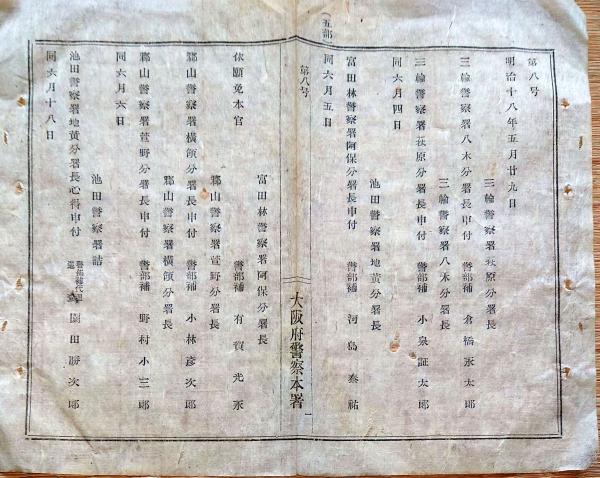 第八号
明治十八年五月廿九日
三輪警察署萩原分署長
三輪警察署八木分署長申付 警部補 倉橋永太郎
三輪警察署八木分署長
三輪警察署萩原分署長申付 警部補 小泉証太郎
同六月四日
池田警察署地黄分署長
富田林警察署阿保分署長申付 警部補 河島泰祐
同六月五日
(五部)
第八号
大阪府警察本署
一
富田林警察署阿保分署長
依願免本官 警部補 有賀光永
郡山警察署菅野分署長
郡山警察署横領分署長申付 警部補 小林彦次郎
郡山警察署横領分署長
郡山警察署菅野分署長申付 警部補 野村小三郎
同六月六日
池田警察署詰
池田警察署地黄分署長心得申付 警部補代理 園田勝次郎
同六月十八日